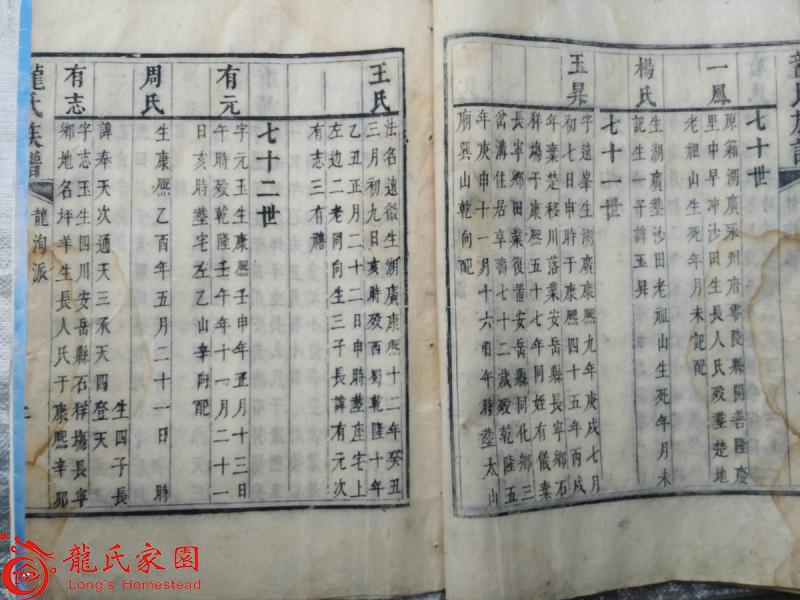 七十世
一鳳
原籍湖廣永州府零陵縣開善隆慶
里中早冲沙田生長人氏殁塟楚地
老祖山生死年月未記配
楊氏
生湖廣塟沙田老祖山生死年月未
記生一子諱玉昇
七十一世
玉昇
字遠峯生湖廣康熙九年庚戌七月
初七日申時于康熙四十五年丙戌
年棄楚移川落業安岳縣長寧鄉石
祥塲于康熙五十七年同姪有儀棄
長寧鄉田業復置安岳縣同化鄉三
岔溝住居享壽七十二歲殁乾隆五
年庚申十一月十六日午時塟大山
廟巽山乾向配
王氏
法名遠微生湖廣康熙十二年癸丑
三月初九日亥時殁西蜀乾隆十年
乙丑正月二十二日申時塟座宅上
左边二老同向生三子長諱有元次
有志三有
七十二世
有元
字元玉生康熙壬申年五月十三日
午時殁乾隆壬午年十一月二十一
日亥時塟宅左乙山辛向配
周氏
生康熙乙酉年五月二十一日 時
生四子長
諱奉天次通天三承天四登天
有志
字志玉生四川安岳縣石祥塲長寧
鄉地名坪羊生長人氏于康熙辛卯
龍氏族譜
龍洵派
龍氏家園
Long's Homestead